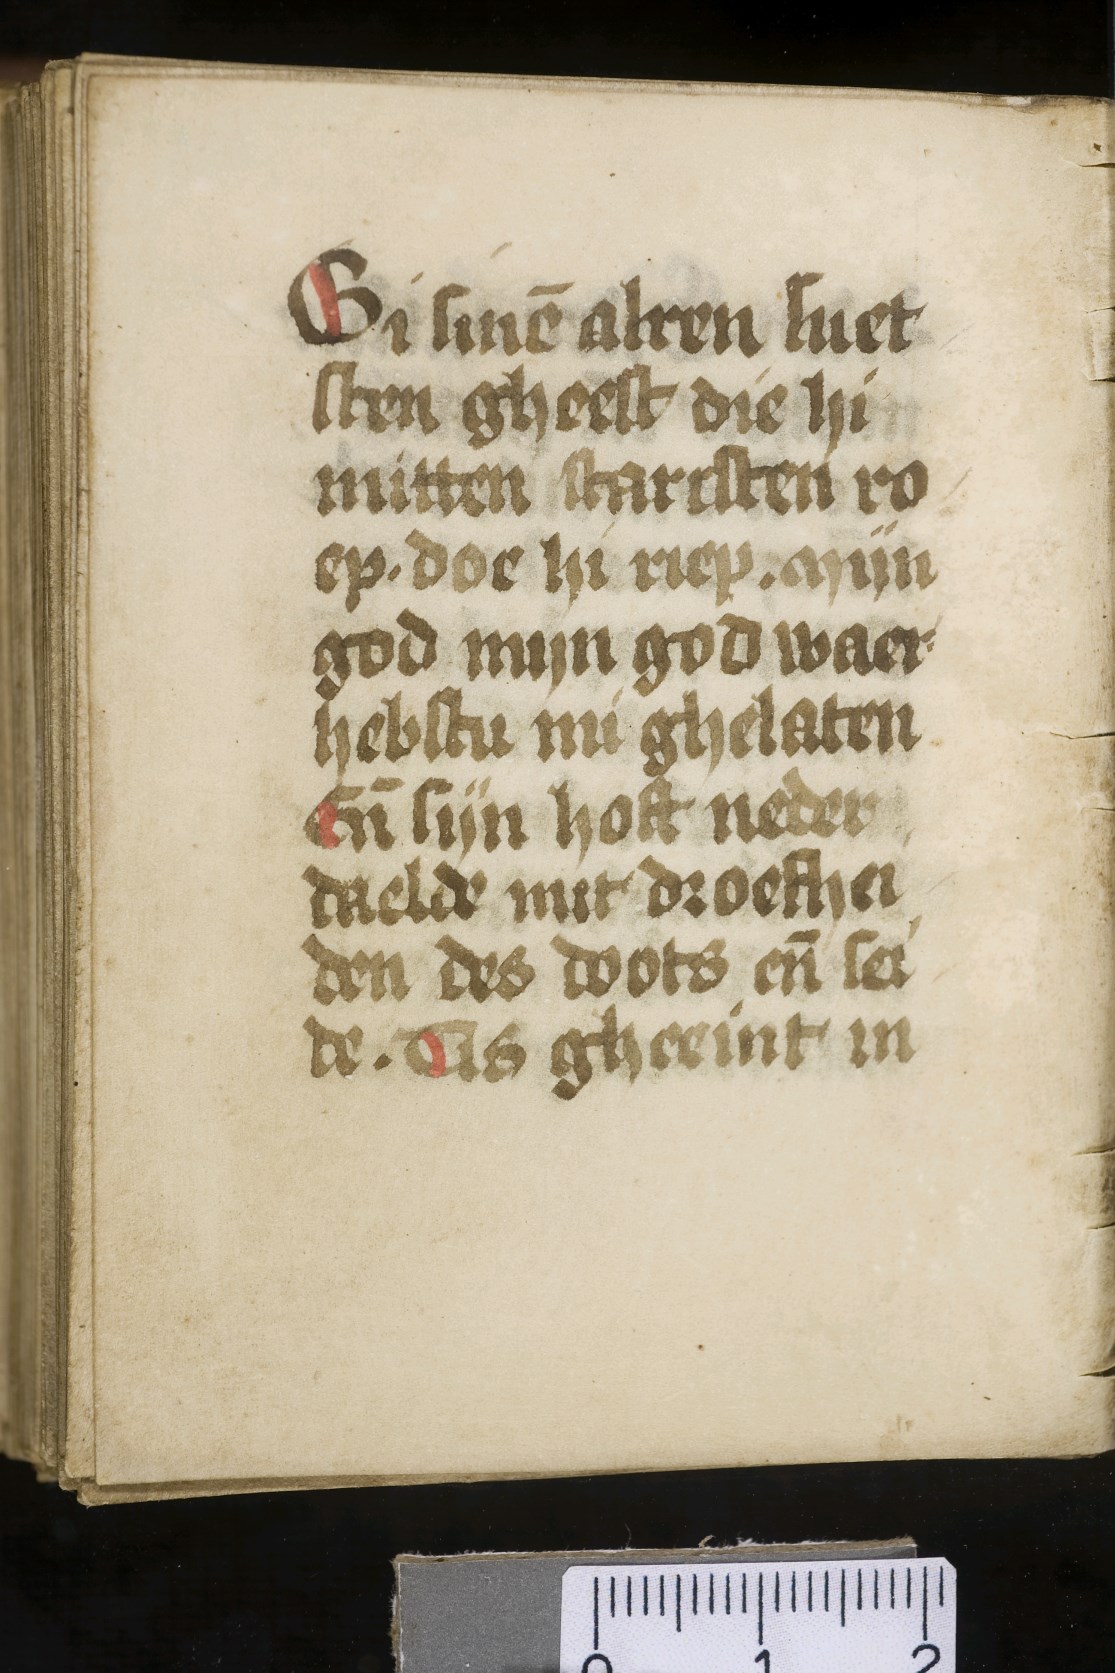 Bi sinē alren suet
sten gheest die hi
mitten starcsten ro
ep. doe hi riep. mijn
god mijn god waer
hebstu mi ghelaten
Eñ sijn hoft neder
daelde mit droefhei
den des doots eñ sei
de. Tis gheeint in
0 1 2